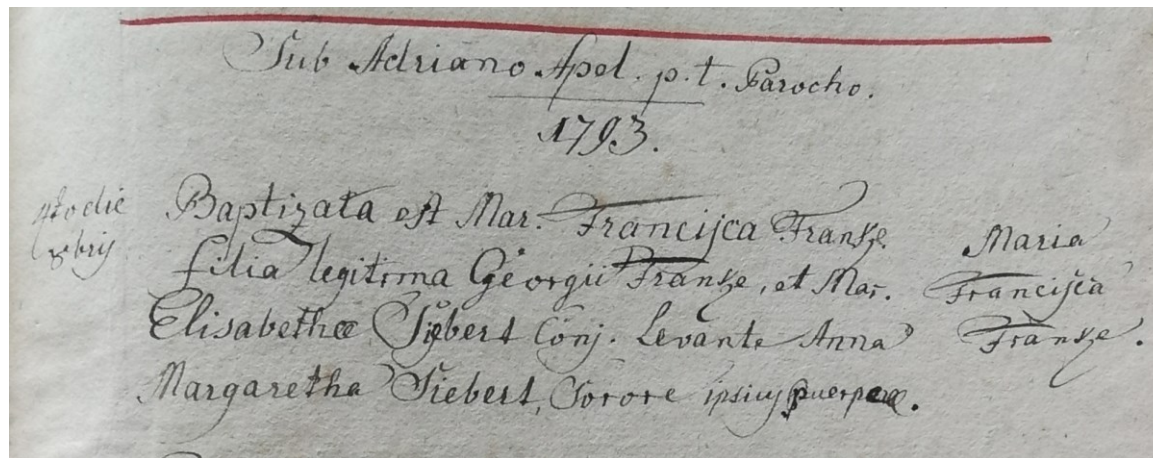 Sub Adriano Apel. p.t. Parocho.
1793.
4to die
8bris
Baptizata est Mar. Francisca Franke
filia legitima Georgii Franke, et Mar.
Elisabethæ Siebert Conj. Levante Anna
Margaretha Siebert, Sorore ipsius puerperæ.
Maria
Francisca
Franke.